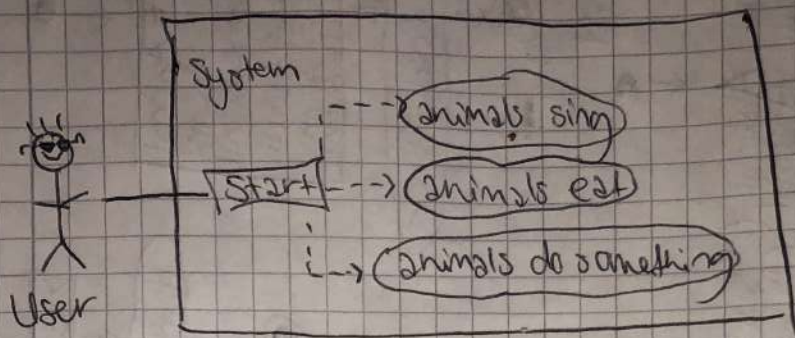 System
animals sing
Start
animals eat
animals do something
User